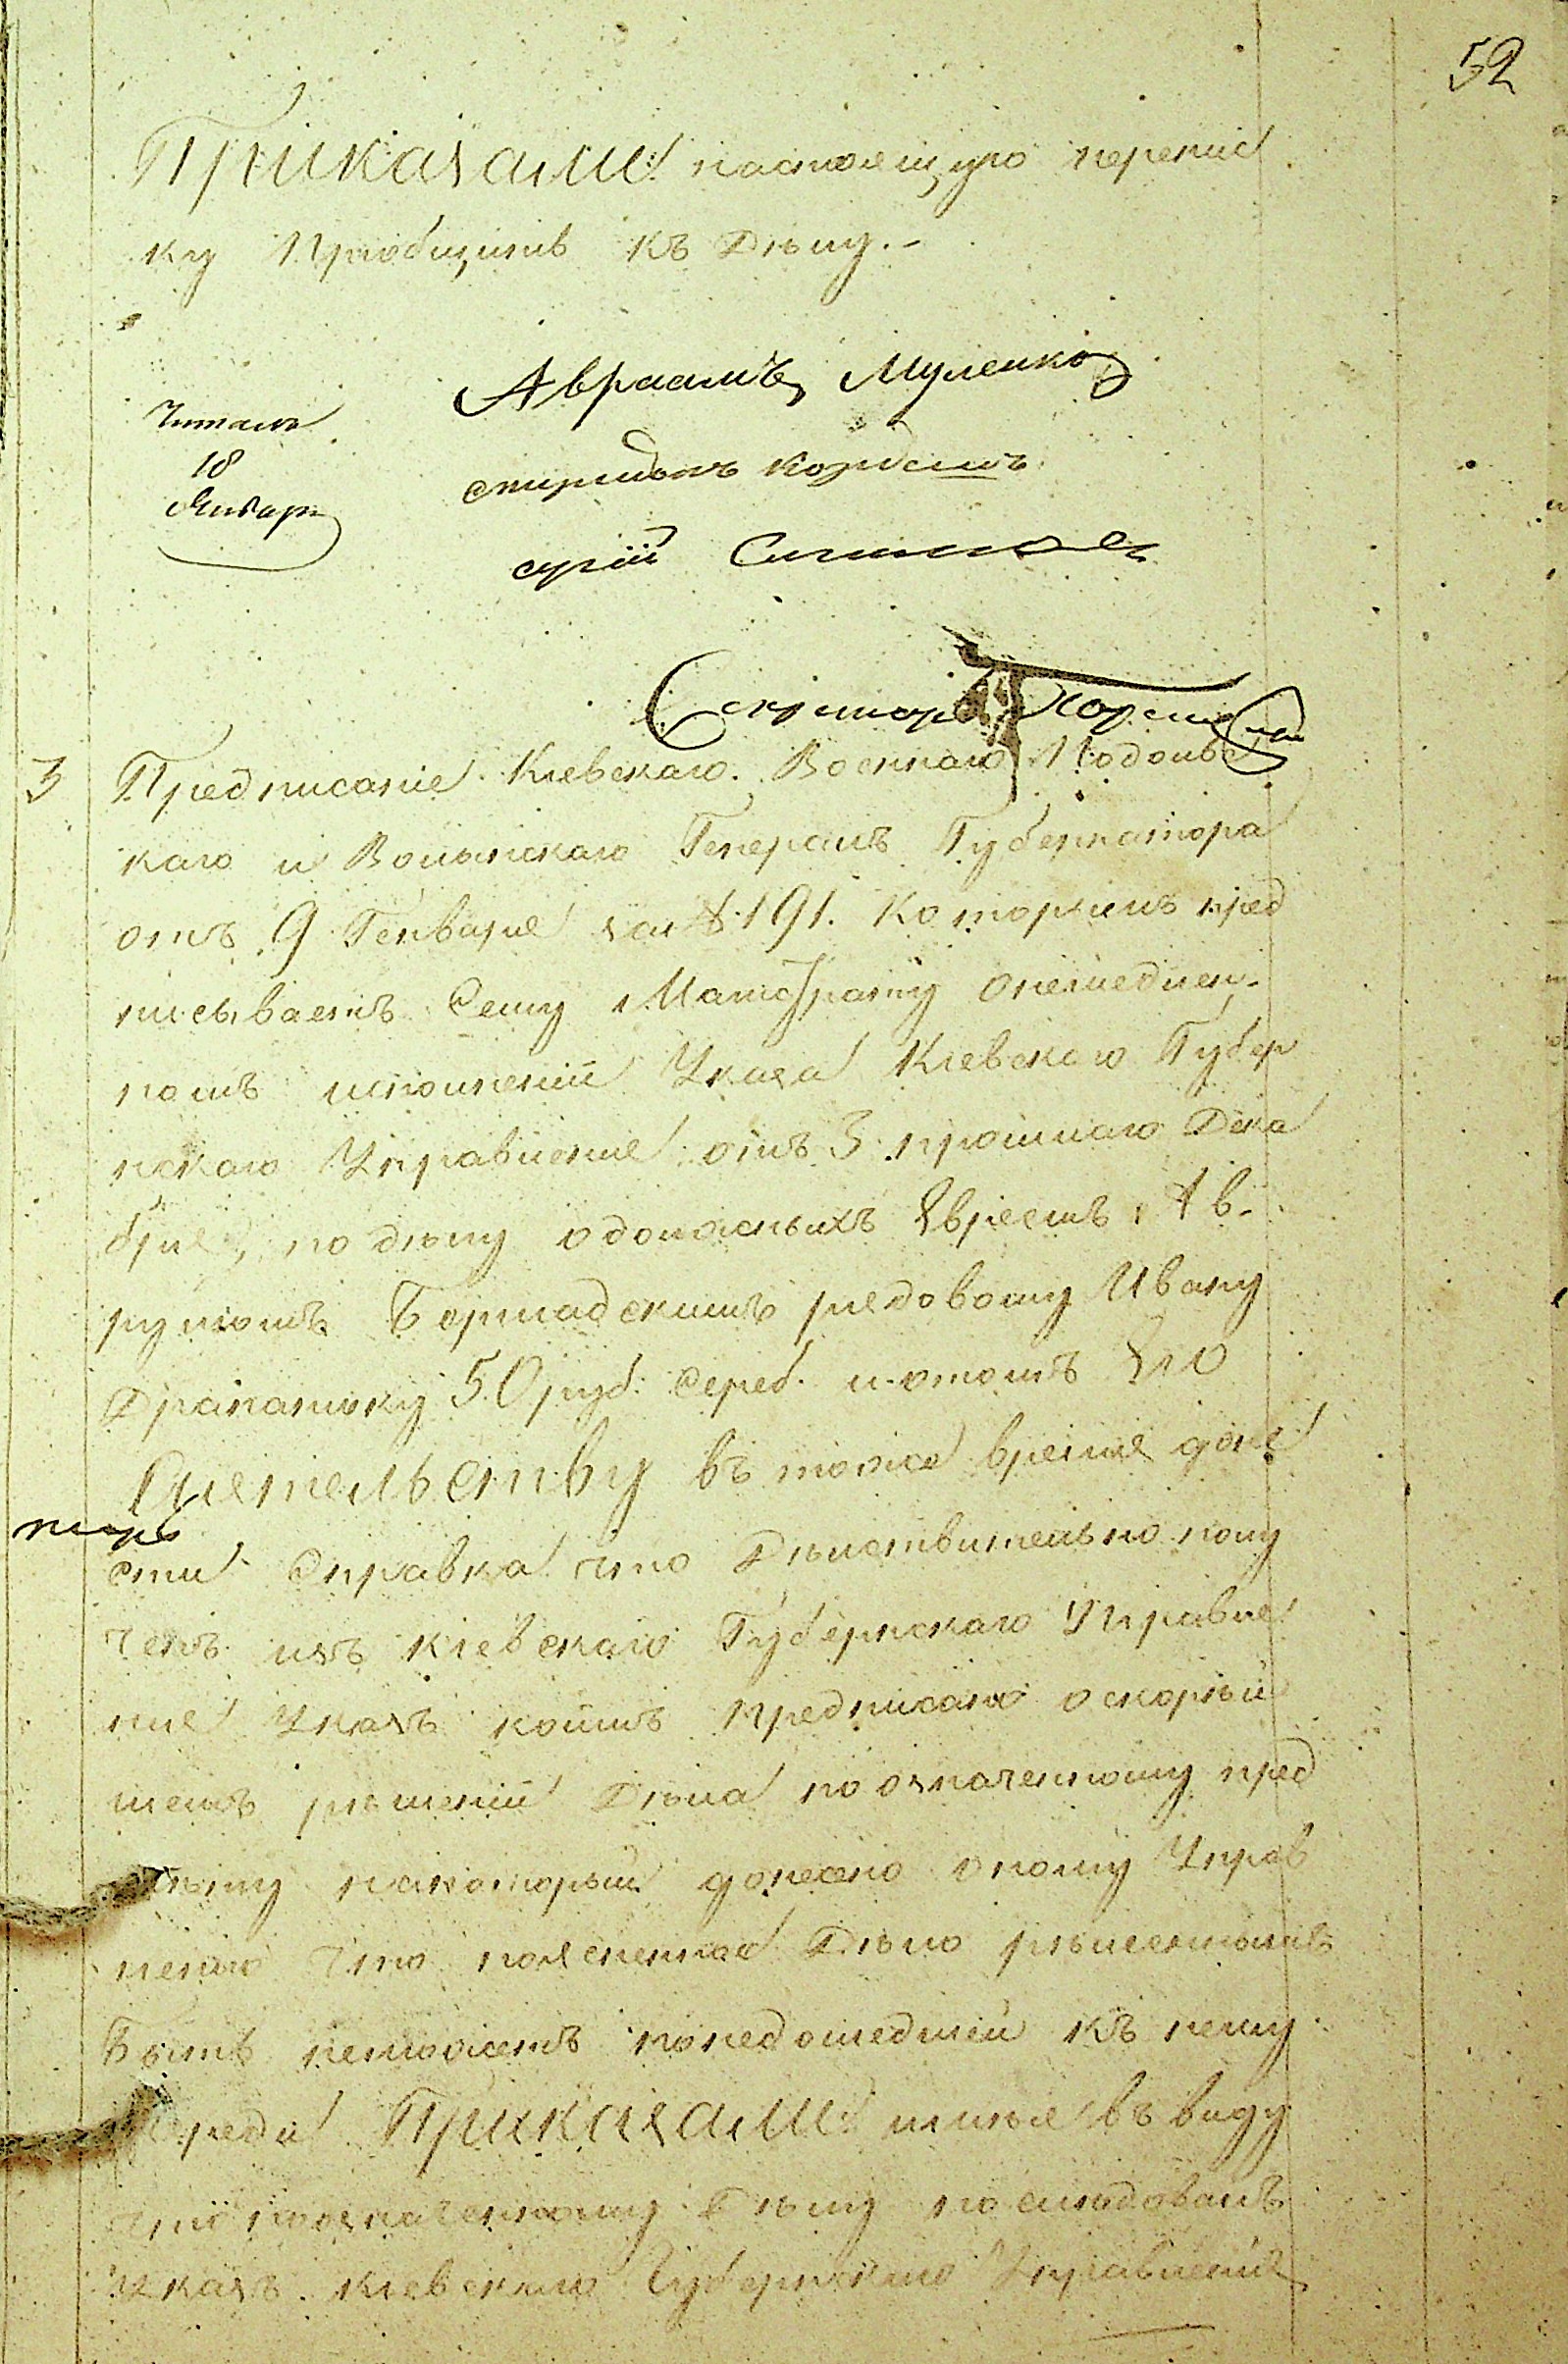 52
Приказали: настоящую перепис
ку Пріобщить къ Дѣлу.-
Авраамъ
Читалъ
18
Январ
спиридонъ
юрій
Секретарь
3 Предписаніе Кіевскаго Военнаго Подольс
каго и Волынскаго Генералъ Губернатора
отъ 9 Генваря за №191. Которымъ пред
писываетъ Сему Магистрату Онемедлен-
номъ исполненіи Указа Кіевскаго Губер
нскаго Управленія отъ 3 прошлаго Дека
бря, по дѣлу одолжныхъ Евреемъ Ав-
румомъ Бершадскимъ рядовому Ивану
50 руб: сереб. и отомъ Его
Сіятельству въ тоже время доне
сти Справка что Дѣйствительно полу
ченъ изъ кіевскаго Губернскаго Управле
нія Указъ коимъ предписано оскорѣй
шемъ рѣшеніи Дѣла по означенному пред
мѣту накоторый донесено оному Управ
ленію что поясненное Дѣло рѣшеннымъ
Быть неможетъ понедошедшей къ нему
череди Приказали: имѣя въ виду
что поозначенному Дѣлу последовалъ
Указъ кіевскаго Губернскаго Управленія